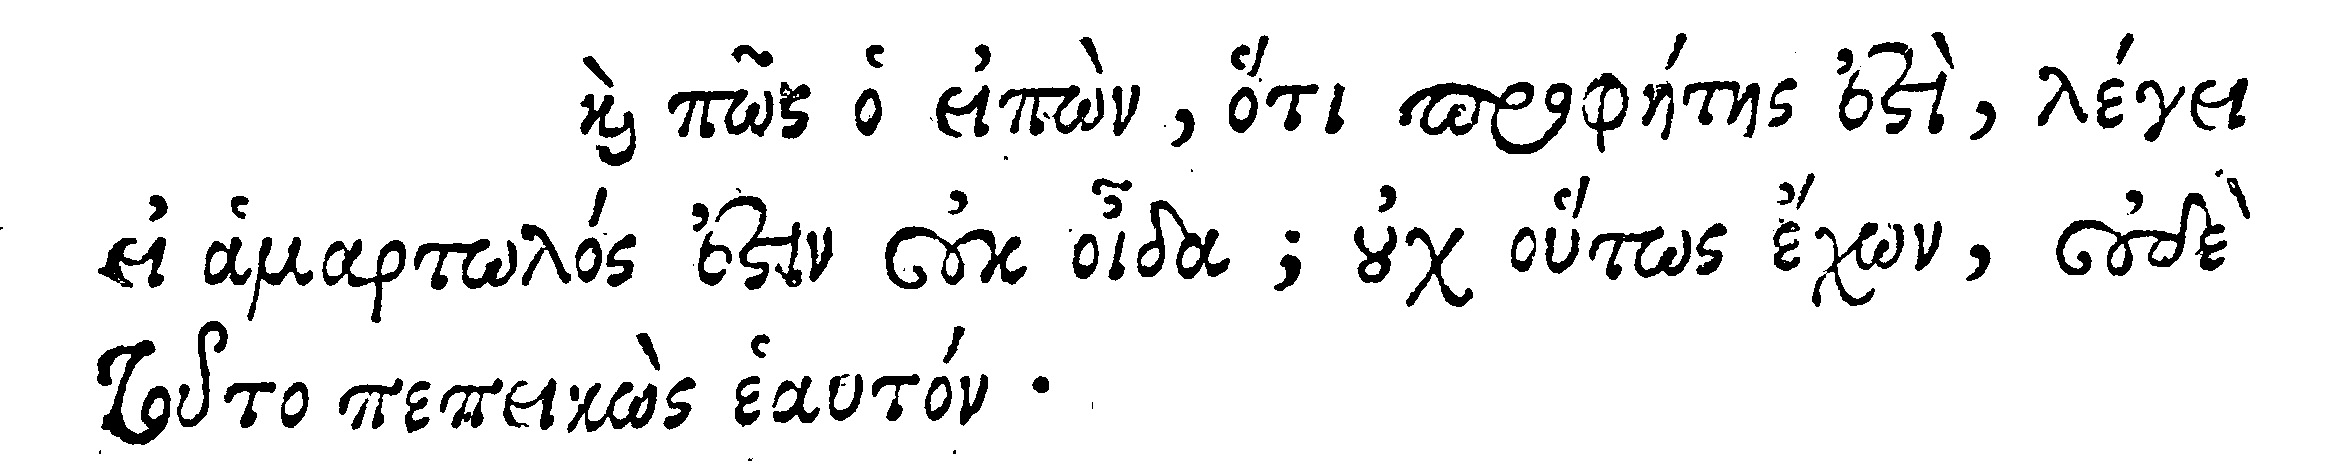 καὶ πῶς ὁ εἰπὼν, ὅτι προφήτης ἐστὶ, λέγει
εἰ ἁμαρτωλός ἐστιν οὐκ οἶδα; οὐχ οὕτως ἔχων, οὐδὲ
τοῦτο πεπεικὼς ἑαυτόν.